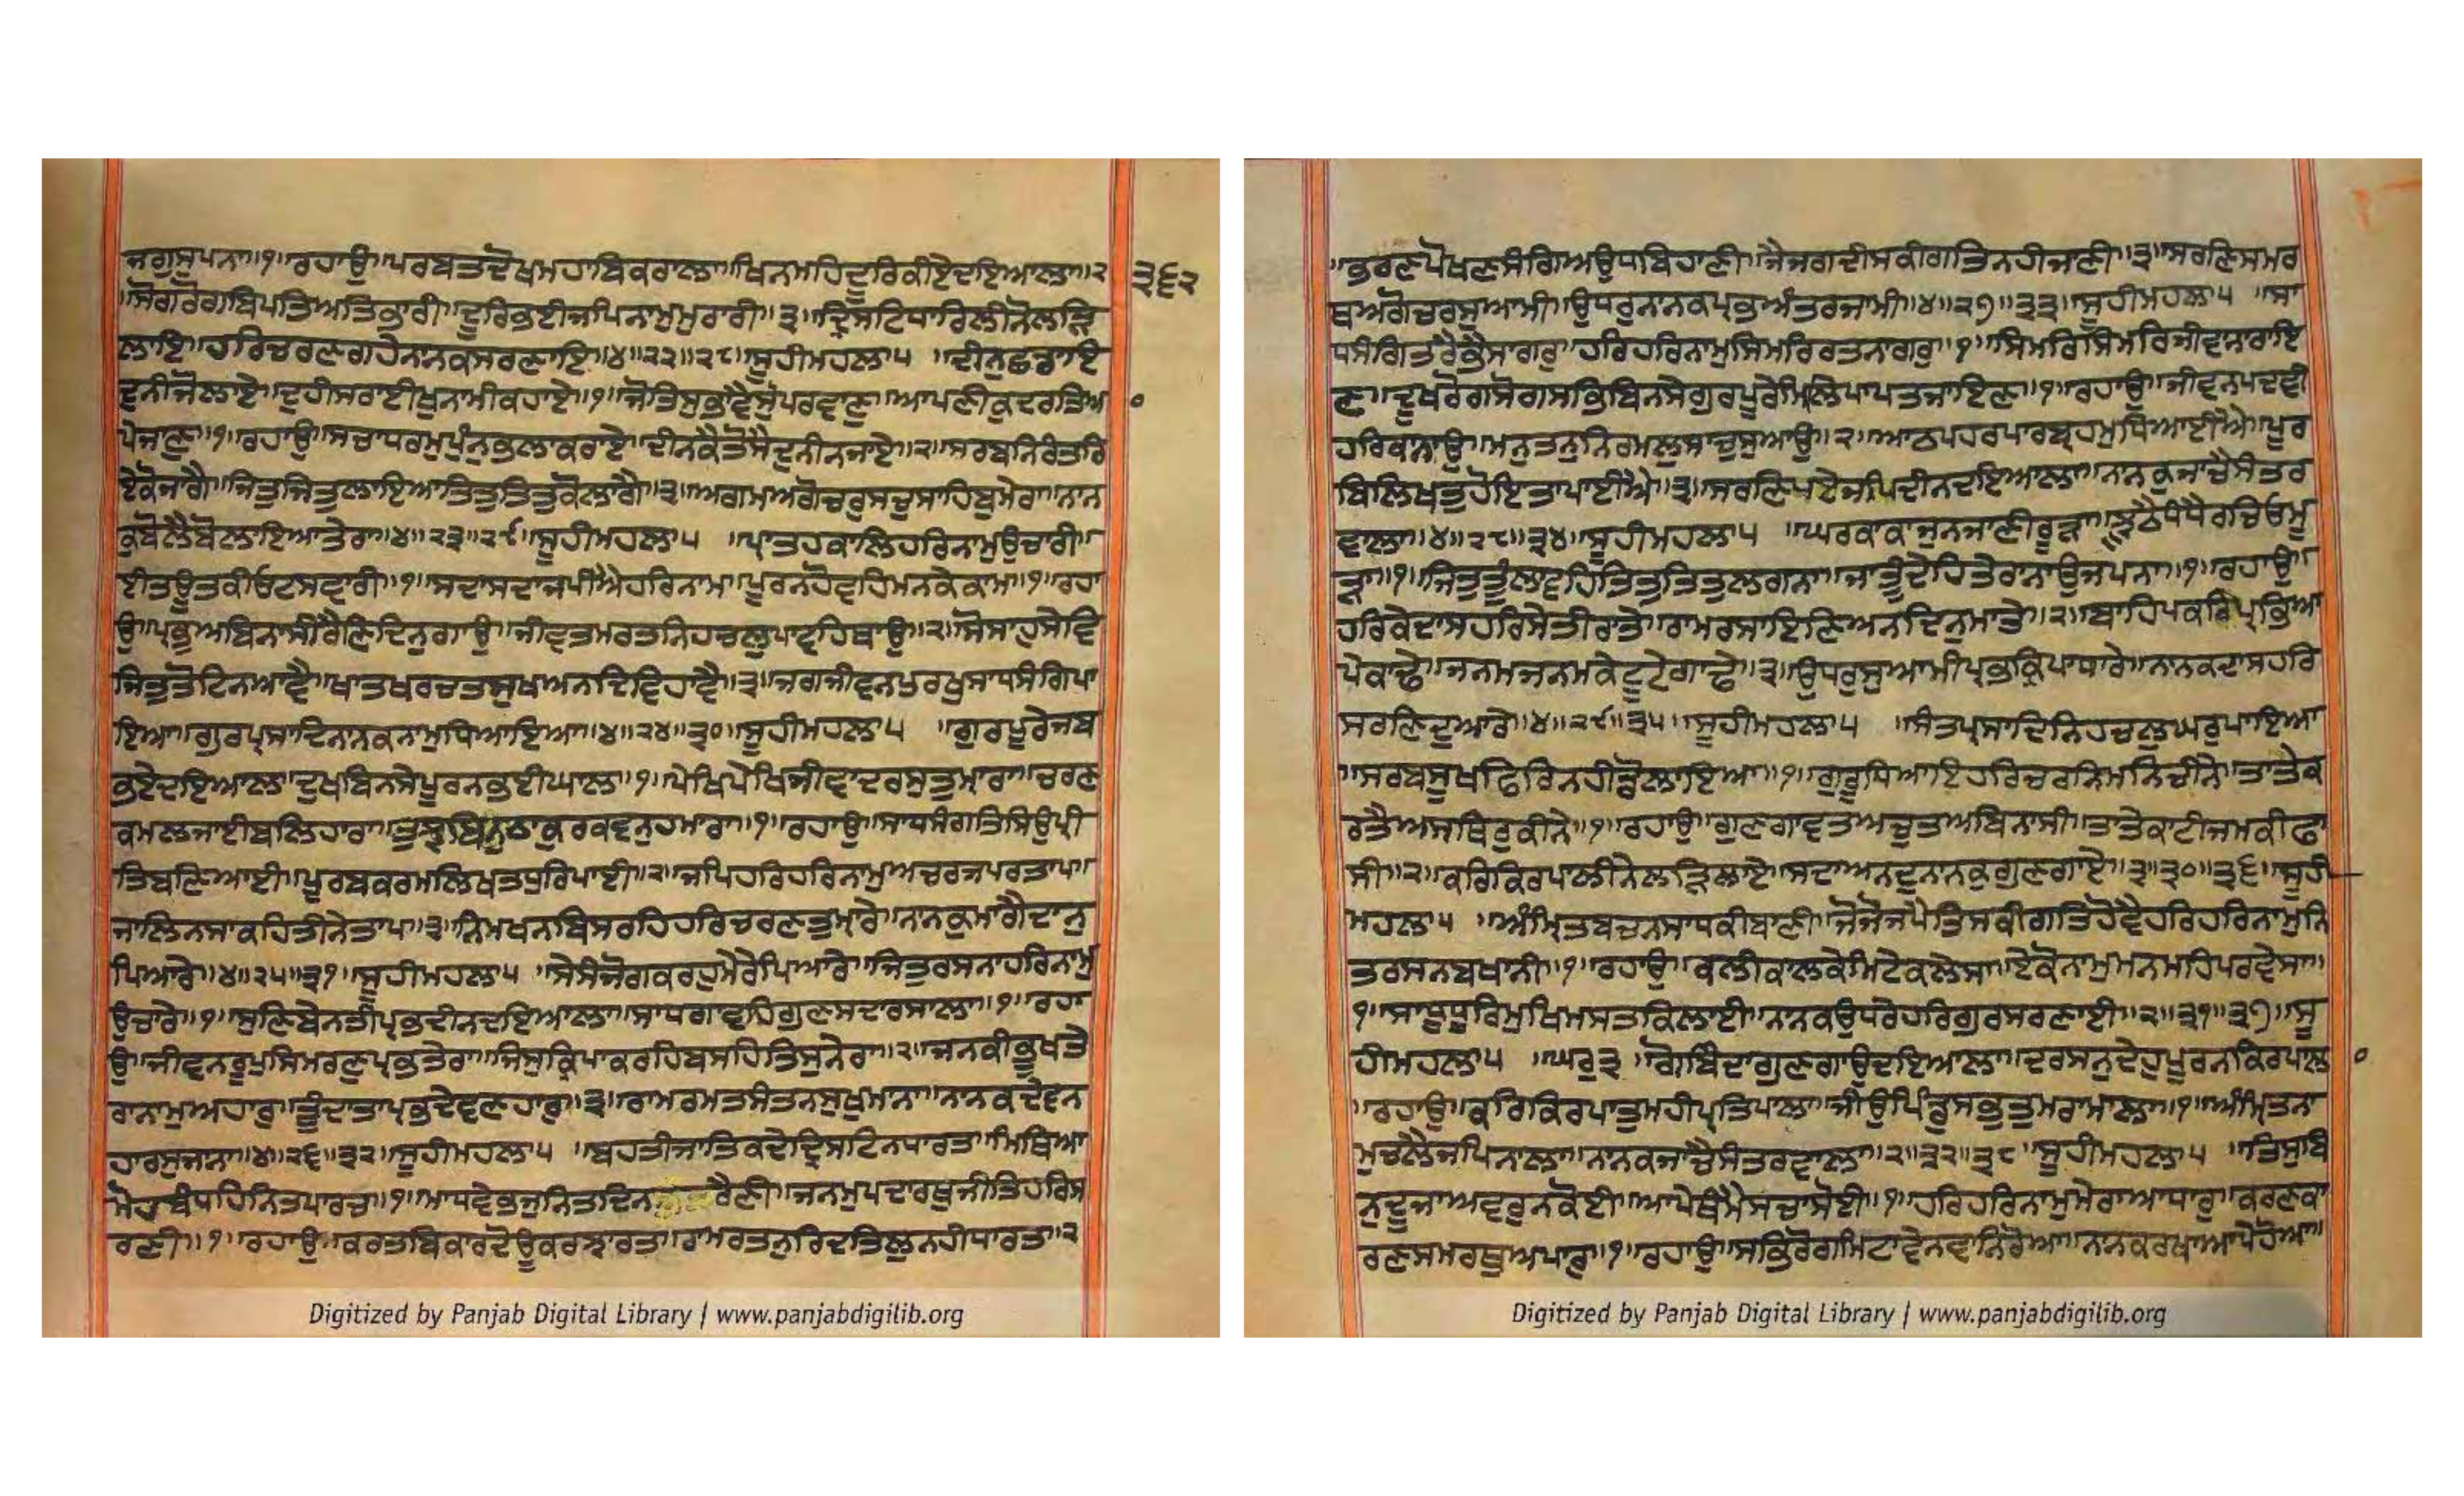 ਜਗੁਸੁਪਨਾ॥੧॥ਰਹਾਉ॥ਪਰਬਤਦੋਖਮਹਾਬਿਕਰਾਲਾ॥ਖਿਨਮਹਿਦੂਰਿਕੀਏਦਇਆਲਾ॥੨
੩੬੨
॥ਸੋਗਰੋਗਬਿਪਤਿਅਤਿਭਾਰੀ॥ਦੂਰਿਭਈਜਪਿਨਾਮੁਮੁਰਾਰੀ॥੩॥ਦ੍ਰਿਸਟਿਧਾਰਿਲੀਨੋਲੜਿ
ਲਾਇ॥ਹਰਿਚਰਣਗਹੇਨਾਨਕਸਰਣਾਇ॥੪॥੨੨॥੨੮॥ਸੂਹੀਮਹਲਾ੫ ॥ਦੀਨੁਛਡਾਇ
ਦੁਨੀਜੋਲਾਏ॥ਦੁਹੀਸਰਾਈਖੁਨਾਮੀਕਹਾਏ॥੧॥ਜੋਤਿਸੁਭਾਵੈਸੋਪਰਵਾਣੁ॥ਆਪਣੀਕੁਦਰਤਿਆ
ਪੇਜਾਣੁ॥੧॥ਰਹਾਉ॥ਸਚਾਧਰਮੁਪੁੰਨੁਭਲਾਕਰਾਏ॥ਦੀਨਕੈਤੋਸੈਦੁਨੀਨਜਾਏ॥੨॥ਸਰਬਨਿਰੰਤਰਿ
ਏਕੋਜਾਗੈ॥ਜਿਤੁਜਿਤੁਲਾਇਆਤਿਤੁਤਿਤੁਕੋਲਾਗੈ॥੩॥ਅਗਮਅਗੋਚਰੁਸਚੁਸਾਹਿਬੁਮੇਰਾ॥ਨਾਨ
ਕੁਬੋਲੈਬੋਲਾਇਆਤੇਰਾ॥੪॥੨੩॥੨੯॥ਸੂਹੀਮਹਲਾ੫ ॥ਪ੍ਰਾਤਹਕਾਲਿਹਰਿਨਾਮੁਉਚਾਰੀ॥
ਈਤਊਤਕੀਓਟਸਵਾਰੀ॥੧॥ਸਦਾਸਦਾਜਪੀਐਹਰਿਨਾਮ॥ਪੂਰਨਹੋਵਹਿਮਨਕੇਕਾਮ॥੧॥ਰਹਾ
ਉ॥ਪ੍ਰਭੁਅਬਿਨਾਸੀਰੈਣਿਦਿਨੁਗਾਉ॥ਜੀਵਤਮਰਤਨਿਹਚਲੁਪਾਵਹਿਥਾਉ॥੨॥ਸੋਸਾਹੁਸੇਵਿ
ਜਿਤੁਤੋਟਿਨਆਵੈ॥ਖਾਤਖਰਚਤਸੁਖਿਅਨਦਿਵਿਹਾਵੈ॥੩॥ਜਗਜੀਵਨਪੁਰਖੁਸਾਧਸੰਗਿਪਾ
ਇਆ॥ਗੁਰਪ੍ਰਸਾਦਿਨਾਨਕਨਾਮੁਧਿਆਇਆ॥੪॥੨੪॥੩੦॥ਸੂਹੀਮਹਲਾ੫ ॥ਗੁਰਪੂਰੇਜਬ
ਭਏਦਇਆਲ॥ਦੁਖਬਿਨਸੇਪੂਰਨਭਈਘਾਲ॥੧॥ਪੇਖਿਪੇਖਿਜੀਵਾਦਰਸੁਤੁਮ੍ਾਰਾ॥ਚਰਣ
ਕਮਲਜਾਈਬਲਿਹਾਰਾ॥ਤੁਝਬਿਨੁਠਾਕੁਰਕਵਨੁਹਮਾਰਾ॥੧॥ਰਹਾਉ॥ਸਾਧਸੰਗਤਿਸਿਉਪ੍ਰੀ
ਤਿਬਣਿਆਈ॥ਪੂਰਬਕਰਮਿਲਿਖਤਧੁਰਿਪਾਈ॥੨॥ਜਪਿਹਰਿਹਰਿਨਾਮੁਅਚਰਜਪਰਤਾਪ॥
ਜਾਲਿਨਸਾਕਹਿਤੀਨੇਤਾਪ॥੩॥ਨਿਮਖਨਬਿਸਰਹਿਹਰਿਚਰਣਤੁਮ੍ਾਰੇ॥ਨਾਨਕੁਮਾਗੈਦਾਨੁ
ਪਿਆਰੇ॥੪॥੨੫॥੩੧॥ਸੂਹੀਮਹਲਾ੫ ॥ਸੇਸੰਜੋਗਕਰਹੁਮੇਰੇਪਿਆਰੇ॥ਜਿਤੁਰਸਨਾਹਰਿਨਾਮੁ
ਉਚਾਰੇ॥੧॥ਸੁਣਿਬੇਨਤੀਪ੍ਰਭਦੀਨਦਇਆਲਾ॥ਸਾਧਗਾਵਹਿਗੁਣਸਦਾਰਸਾਲਾ॥੧॥ਰਹਾ
ਉ॥ਜੀਵਨਰੂਪੁਸਿਮਰਣੁਪ੍ਰਭਤੇਰਾ॥ਜਿਸੁਕ੍ਰਿਪਾਕਰਹਿਬਸਹਿਤਿਸੁਨੇਰਾ॥੨॥ਜਨਕੀਭੂਖਤੇ
ਰਾਨਾਮੁਅਹਾਰੁ॥ਤੂੰਦਾਤਾਪ੍ਰਭਦੇਵਣਹਾਰੁ॥੩॥ਰਾਮਰਮਤਸੰਤਨਸੁਖੁਮਾਨਾ॥ਨਾਨਕਦੇਵਨ
ਹਾਰਸੁਜਾਨਾ॥੪॥੨੬॥੩੨॥ਸੂਹੀਮਹਲਾ੫ ॥ਬਹਤੀਜਾਤਿਕਦੇਦ੍ਰਿਸਟਿਨਧਾਰਤ॥ਮਿਥਿਆ
ਮੋਹਬੰਧਹਿਨਿਤਪਾਰਚ॥੧॥ਮਾਧਵੇਭਜੁਨਿਤਦਿਨ ਰੈਣੀ॥ਜਨਮੁਪਦਾਰਥੁਜੀਤਿਹਰਿਸ
ਰਣੀ॥੧॥ਰਹਾਉ॥ਕਰਤਬਿਕਾਰਦੋਊਕਰਝਾਰਤ॥ਰਾਮਰਤਨੁਰਿਦਤਿਲੁਨਹੀਧਾਰਤ॥੨
Digitized by Panjab Digital Library | www.panjabdigilib.org
॥ਭਰਣਪੋਖਣਸੰਗਿਅਉਧਬਿਹਾਣੀ॥ਜੈਜਗਦੀਸਕੀਗਤਿਨਹੀਜਾਣੀ॥੩॥ਸਰਣਿਸਮਰ
ਥਅਗੋਚਰਸੁਆਮੀ॥ਉਧਰੁਨਾਨਕਪ੍ਰਭਅੰਤਰਜਾਮੀ॥੪॥੨੭॥੩੩॥ਸੂਹੀਮਹਲਾ੫ ॥ਸਾ
ਧਸੰਗਿਤਰੈਭੈਸਾਗਰੁ॥ਹਰਿਹਰਿਨਾਮੁਸਿਮਰਿਰਤਨਾਗਰੁ॥੧॥ਸਿਮਰਿਸਿਮਰਿਜੀਵਾਨਾਰਾਇ
ਣ॥ਦੂਖਰੋਗਸੋਗਸਭਿਬਿਨਸੇਗੁਰਪੂਰੇਮਿਲਿਪਾਪਤਜਾਇਣ॥੧॥ਰਹਾਉ॥ਜੀਵਨਪਦਵੀ
ਹਰਿਕਾਨਾਉ॥ਮਨੁਤਨੁਨਿਰਮਲੁਸਾਚੁਸੁਆਉ॥੨॥ਆਠਪਹਰਪਾਰਬ੍ਰਹਮੁਧਿਆਈਐ॥ਪੂਰ
ਬਿਲਿਖਤੁਹੋਇਤਾਪਾਈਐ॥੩॥ਸਰਣਿਪਏਜਪਿਦੀਨਦਇਆਲਾ॥ਨਾਨਕੁਜਾਚੈਸੰਤਰ
ਵਾਲਾ॥੪॥੨੮॥੩੪॥ਸੂਹੀਮਹਲਾ੫ ॥ਘਰਕਾਕਾਜੁਨਜਾਣੀਰੂੜਾ॥ਝੂਠੈਧੰਧੈਰਚਿਓਮੂ
ੜਾ॥੧॥ਜਿਤੁਤੂੰਲਾਵਹਿਤਿਤੁਤਿਤੁਲਗਨਾ॥ਜਾਤੂੰਦੇਹਿਤੇਰਾਨਾਉਜਪਨਾ॥੧॥ਰਹਾਉ॥
ਹਰਿਕੇਦਾਸਹਰਿਸੇਤੀਰਾਤੇ॥ਰਾਮਰਸਾਇਣਿਅਨਦਿਨੁਮਾਤੇ॥੨॥ਬਾਹਪਕਰਿਪ੍ਰਭਿਆ
ਪੇਕਾਢੇ॥ਜਨਮਜਨਮਕੇਟੂਟੇਗਾਢੇ॥੩॥ਉਧਰੁਸੁਆਮੀਪ੍ਰਭਕ੍ਰਿਪਾਧਾਰੇ॥ਨਾਨਕਦਾਸਹਰਿ
ਸਰਣਿਦੁਆਰੇ॥੪॥੨੯॥੩੫॥ਸੂਹੀਮਹਲਾ੫ ॥ਸੰਤਪ੍ਰਸਾਦਿਨਿਹਚਲੁਘਰੁਪਾਇਆ
॥ਸਰਬਸੂਖਫਿਰਿਨਹੀਡੋੁਲਾਇਆ॥੧॥ਗੁਰੂਧਿਆਇਹਰਿਚਰਨਮਨਿਚੀਨੇ॥ਤਾਤੇਕ
ਰਤੈਅਸਥਿਰੁਕੀਨੇ॥੧॥ਰਹਾਉ॥ਗੁਣਗਾਵਤਅਚੁਤਅਬਿਨਾਸੀ॥ਤਾਤੇਕਾਟੀਜਮਕੀਫਾ
ਸੀ॥੨॥ਕਰਿਕਿਰਪਾਲੀਨੇਲੜਿਲਾਏ॥ਸਦਾਅਨਦੁਨਾਨਕਗੁਣਗਾਏ॥੩॥੩੦॥੩੬॥ਸੂਹੀ
ਮਹਲਾ੫ ॥ਅੰਮ੍ਰਿਤਬਚਨਸਾਧਕੀਬਾਣੀ॥ਜੋਜੋਜਪੈਤਿਸਕੀਗਤਿਹੋਵੈਹਰਿਹਰਿਨਾਮੁਨਿ
ਤਰਸਨਬਖਾਨੀ॥੧॥ਰਹਾਉ॥ਕਲੀਕਾਲਕੇਮਿਟੇਕਲੇਸਾ॥ਏਕੋਨਾਮੁਮਨਮਹਿਪਰਵੇਸਾ॥
੧॥ਸਾਧੂਧੂਰਿਮੁਖਿਮਸਤਕਿਲਾਈ॥ਨਾਨਕਉਧਰੇਹਰਿਗੁਰਸਰਣਾਈ॥੨॥੩੧॥੩੭॥ਸੂ
ਹੀਮਹਲਾ੫ ॥ਘਰੁ੩ ॥ਗੋਬਿੰਦਾਗੁਣਗਾਉਦਇਆਲਾ॥ਦਰਸਨੁਦੇਹੁਪੂਰਨਕਿਰਪਾਲਾ
॥ਰਹਾਉ॥ਕਰਿਕਿਰਪਾਤੁਮਹੀਪ੍ਰਤਿਪਾਲਾ॥ਜੀਉਪਿੰਡੁਸਭੁਤੁਮਰਾਮਾਲਾ॥੧॥ਅੰਮ੍ਰਿਤਨਾ
ਮੁਚਲੈਜਪਿਨਾਲਾ॥ਨਾਨਕਜਾਚੈਸੰਤਰਵਾਲਾ॥੨॥੩੨॥੩੮॥ਸੂਹੀਮਹਲਾ੫ ॥ਤਿਸੁਬਿ
ਨੁਦੂਜਾਅਵਰੁਨਕੋਈ॥ਆਪੇਥੰਮੈਸਚਾਸੋਈ॥੧॥ਹਰਿਹਰਿਨਾਮੁਮੇਰਾਆਧਾਰੁ॥ਕਰਣਕਾ
ਰਣਸਮਰਥੁਅਪਾਰੁ॥੧॥ਰਹਾਉ॥ਸਭਿਰੋਗਮਿਟਾਵੇਨਵਾਨਿਰੋਆ॥ਨਾਨਕਰਖਾਆਪੇਹੋਆ॥
Digitized by Panjab Digital Library | www.panjabdigilib.org